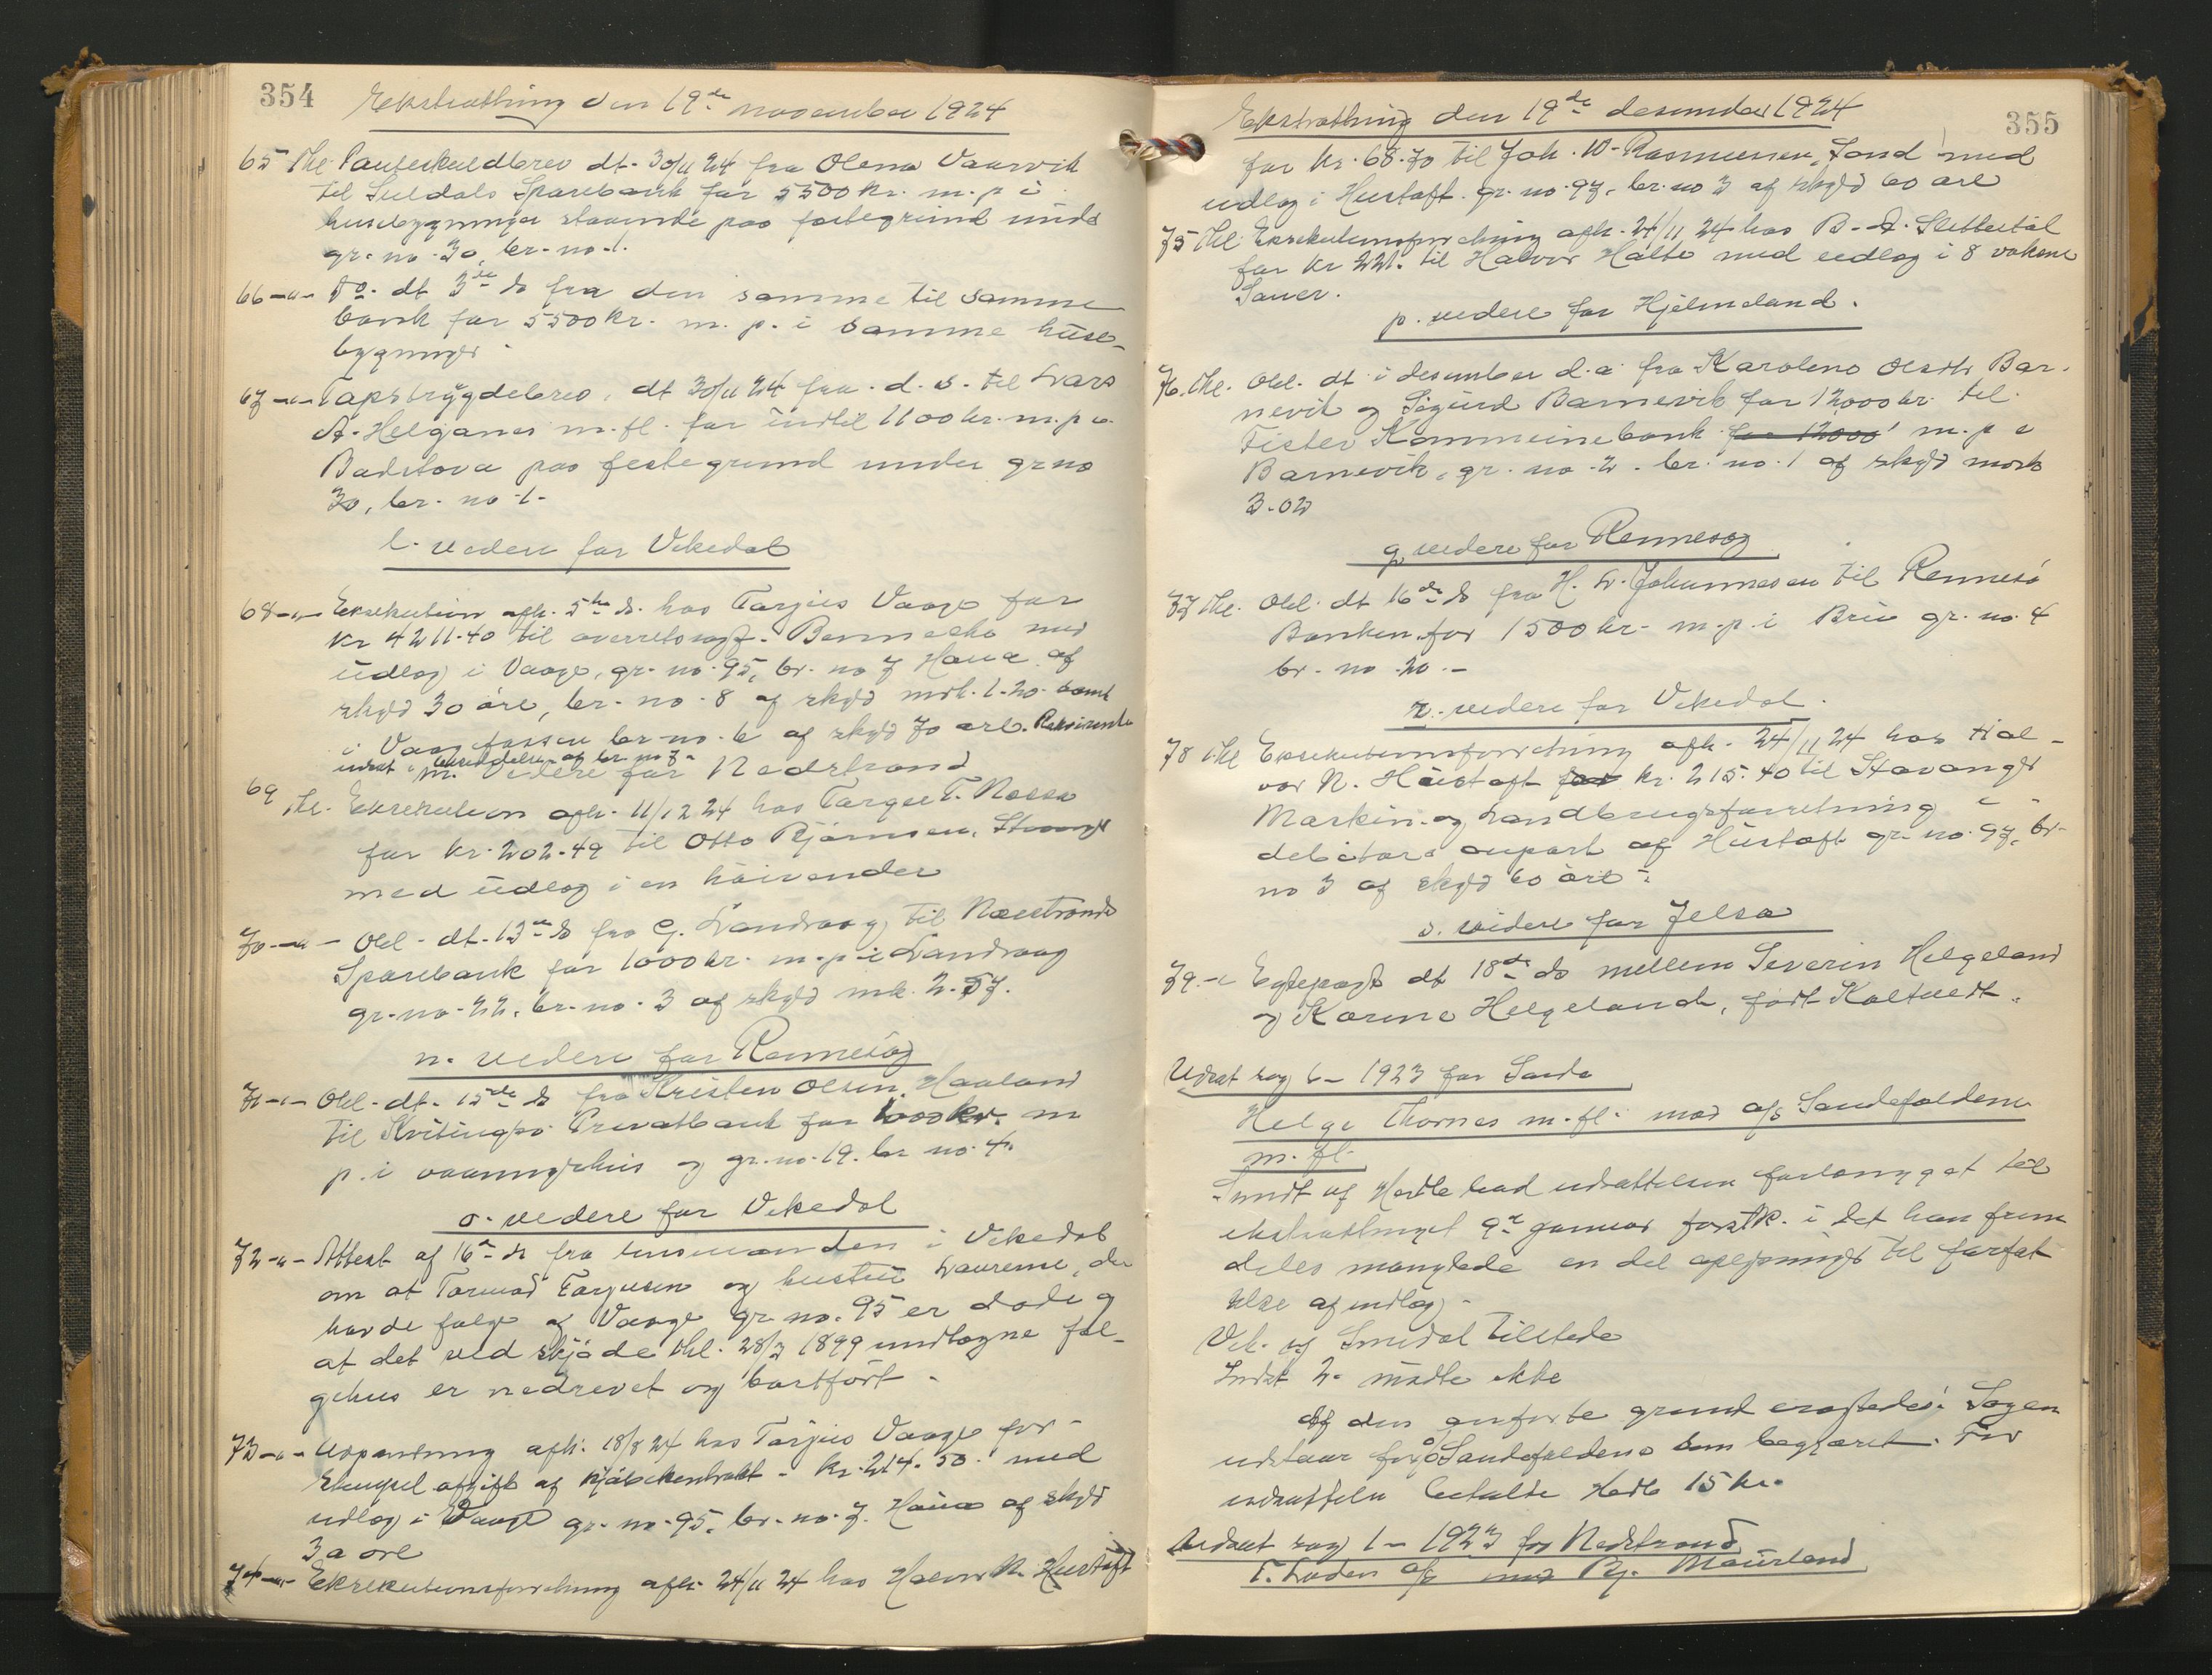 354
Ekstrathing den 19de november 1924
65 thl. Panteskuldbrev dt. 30/11 24 fra Olena Vaarvik
til Suldals Sparebank for 5500 kr. m. p i
husebygninger staaende paa festegrund under
gr. no. 30, br. no. 1.
66 -"- Do. dt 3de ds fra den samme til samme
bank for 5500 kr. m. p. i samme huse-
bygninger.
67 -"- Tapstrygdebrev, dt 30/11 24 fra d. s. til Lars
A. Helganes m. fl. for indtil 1100 kr. m. p i
Badstova paa festegrund under gr no
30, br. no 1.
l. videre for Vikedal
68 -"- Eksekution afh. 5te ds. hos Torgius Vaage for
kr 4211.40 til overretssagf. Bennecke med
udlæg i Vaage, gr. no. 95, br. no 7 Haua af
skyld 30 øre, br. no. 8 af skyld mrk. 1.20 samt
i Vaag fossen br. no. 6 af skyld 70 øre. Rekvirenten
udsat i besiddelse af br. no 7.
m. Videre for Nedstrand
69 thl. Eksekution afh. 11/12 24 hos Torger T. Næssa
for kr. 202.49 til Otto Bjørnsen, Stavanger
med udlæg i en høivender
70 -"- Obl. dt. 13de ds fra G. Landraag til Næsstrands
Sparebank for 1000 kr. m. p i Landraag
gr. no. 22, br. no. 3 af skyld mk. 2.57.
n. videre for Rennesøy
71 -"- Obl. dt. 15de ds fra Kristen Olsen Haaland
til Kvitingsø Privatbank for 1000 kr. m
p. i vaaningshus og gr. no. 19. br no. 4.
o. videre for Vikedal
72 -"- Attest af 16de ds fra lensmanden i Vikedal
om at Tormod Torgusen og hustru Laurense, der
havde følge af Vaage gr. no. 95 er døde og
at det ved skjøde thl. 28/3 1899 undtagne føl-
gehus er nedrevet og bortført.
73 -"- Udpantning afh. 18/8 24 hos Torgius Vaage for
stempel afgift af kjøbekontrakt - kr. 214.50. med
udlæg i Vaage gr. no. 95, br. no. 7. Haua af skyld
30 øre
74 -"- Eksekutionsforretning afh. 24/11 24 hos Halvor N. Hustoft
355
Ekstrathing den 19de desember 1924
for kr. 68.70 til Joh. W. Rasmussen, Sand med
udlæg i Hustoft gr. no. 97, br. no 3 af skyld 60 øre
75 thl. Eksekutionsforretning afh. 24/11 24 hos B. A. Slettedal
for kr 221. til Halvor Halte med udlæg i 8 voksne
Sauer.
p. videre for Hjelmeland.
76. thl. Obl. dt i desember d. a. fra Karoline Olsdtr Bar-
nevik og Sigurd Barnevik for 12000 kr. til
Fister Kommunebank for 12000 m. p i
Barnevik, gr. no. 2. br. no. 1 af skyld mark
3.02
q videre for Rennesøy
77 thl. Obl. dt 16de ds fra H. L. Johannesen til Rennesø
Banken for 1500 kr. m. p. i Bru gr. no. 4
br. no. 20.
r. videre for Vikedal.
78 thl Eksekutionsforretning afh. 24/11 24 hos Hal-
vor N. Hustoft for kr. 215.40 til Stavanger
Maskin- og Landbrugsforretning i
debitors anpart af Hustoft gr. no. 97, br.
no 3 af skyld 60 øre.
s. videre for Jelsa
79. -"- Egtepagt dt 18de ds mellem Severin Helgeland
og Karine Helgeland, født Kaltvedt.
Udsat sag 6 - 1923 for Sauda
Helge Thornes m. fl. mod a/s Saudefaldene
m. fl.
Smdt af Hertle bad udsættelsen forlænget til
ekstrathinget 9de januar førstk. i det han frem
deles manglede en del oplysninger til forfat
telse af indlæg.
Vek. og Smedal tilstede
Indst 2. mødte ikke
Af den anførte grund eragtedes: Sagen
udstaar for a/s Saudefaldene som begjæret. For
udsættelse betalte Hertle 15 kr.
Udsat sag 1 - 1923 for Nedstrand
T. Loden a/s mod Bj. Maurland